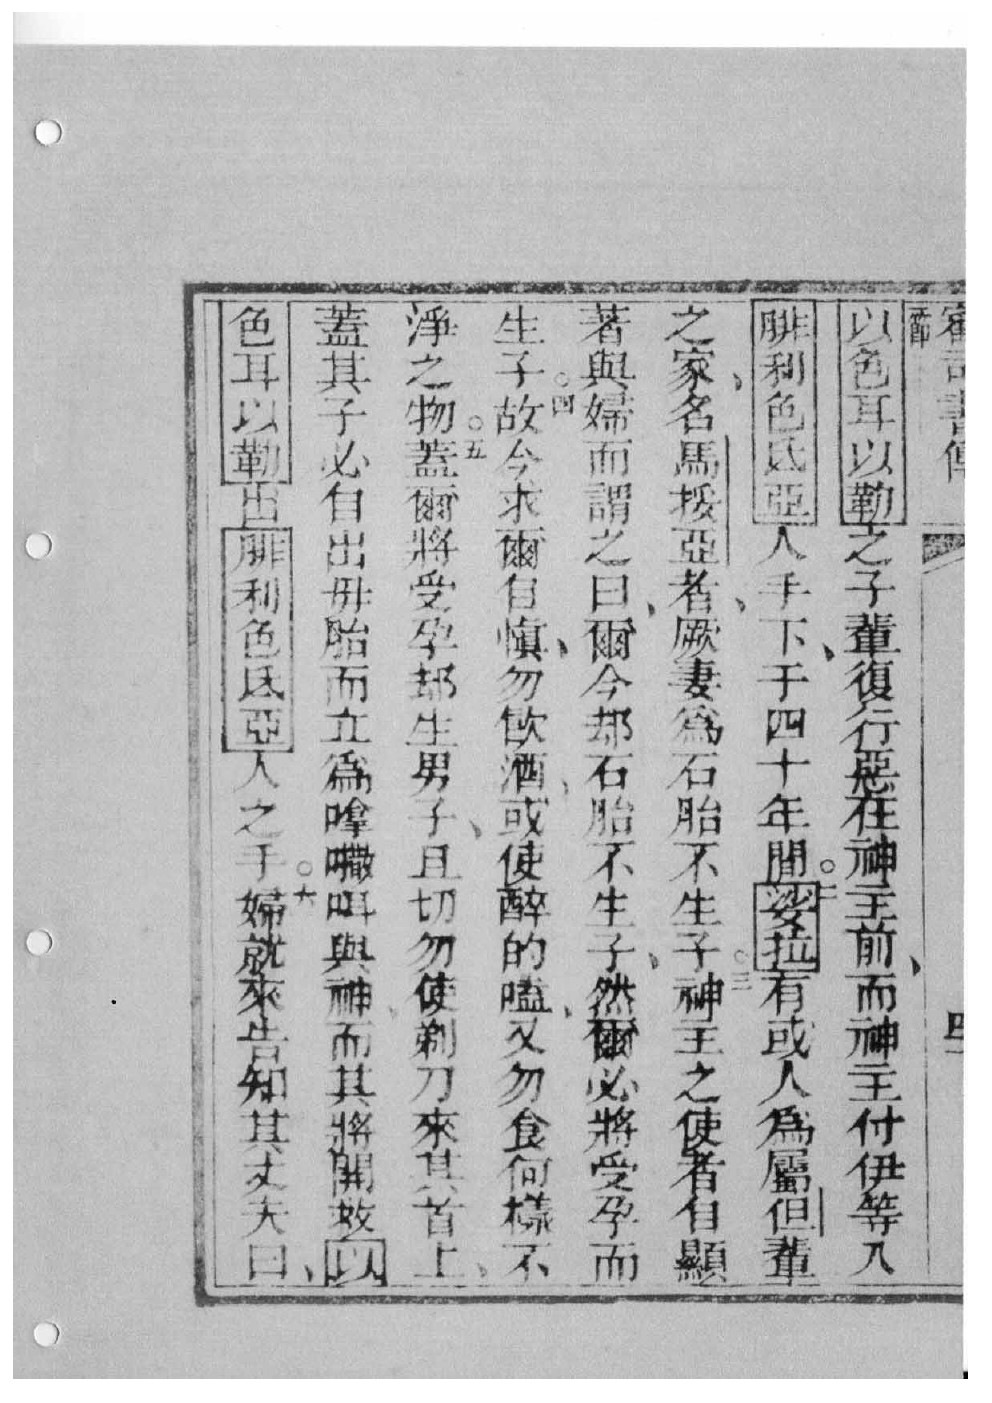 審司書傳
節
以色耳以勒之子輩復行惡在神主前、而神主付伊等入
腓利色氐亞人手下、于四十年間。二娑拉有或人為屬但輩
之家、名馬挼亞者、厥妻為石胎不生子。三神主之使者自顯
著與婦而謂之曰、爾今却石胎不生子、然爾必將受孕而
生子。四故今求爾自慎、勿飲酒、或使醉的嗑、又勿食何樣不
淨之物。五蓋爾將受孕却生男子、且切勿使剃刀來其首上、
蓋其子必自出毋胎而立為嗱㘔咡與神、而其將開救以
色耳以勒出腓利色氐亞人之手。六婦就來告知其丈夫曰、